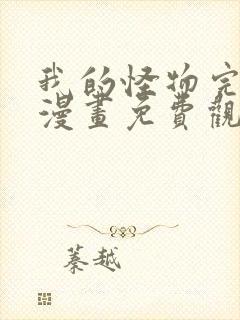 我的怪物完
漫畫免費觀
蓁越